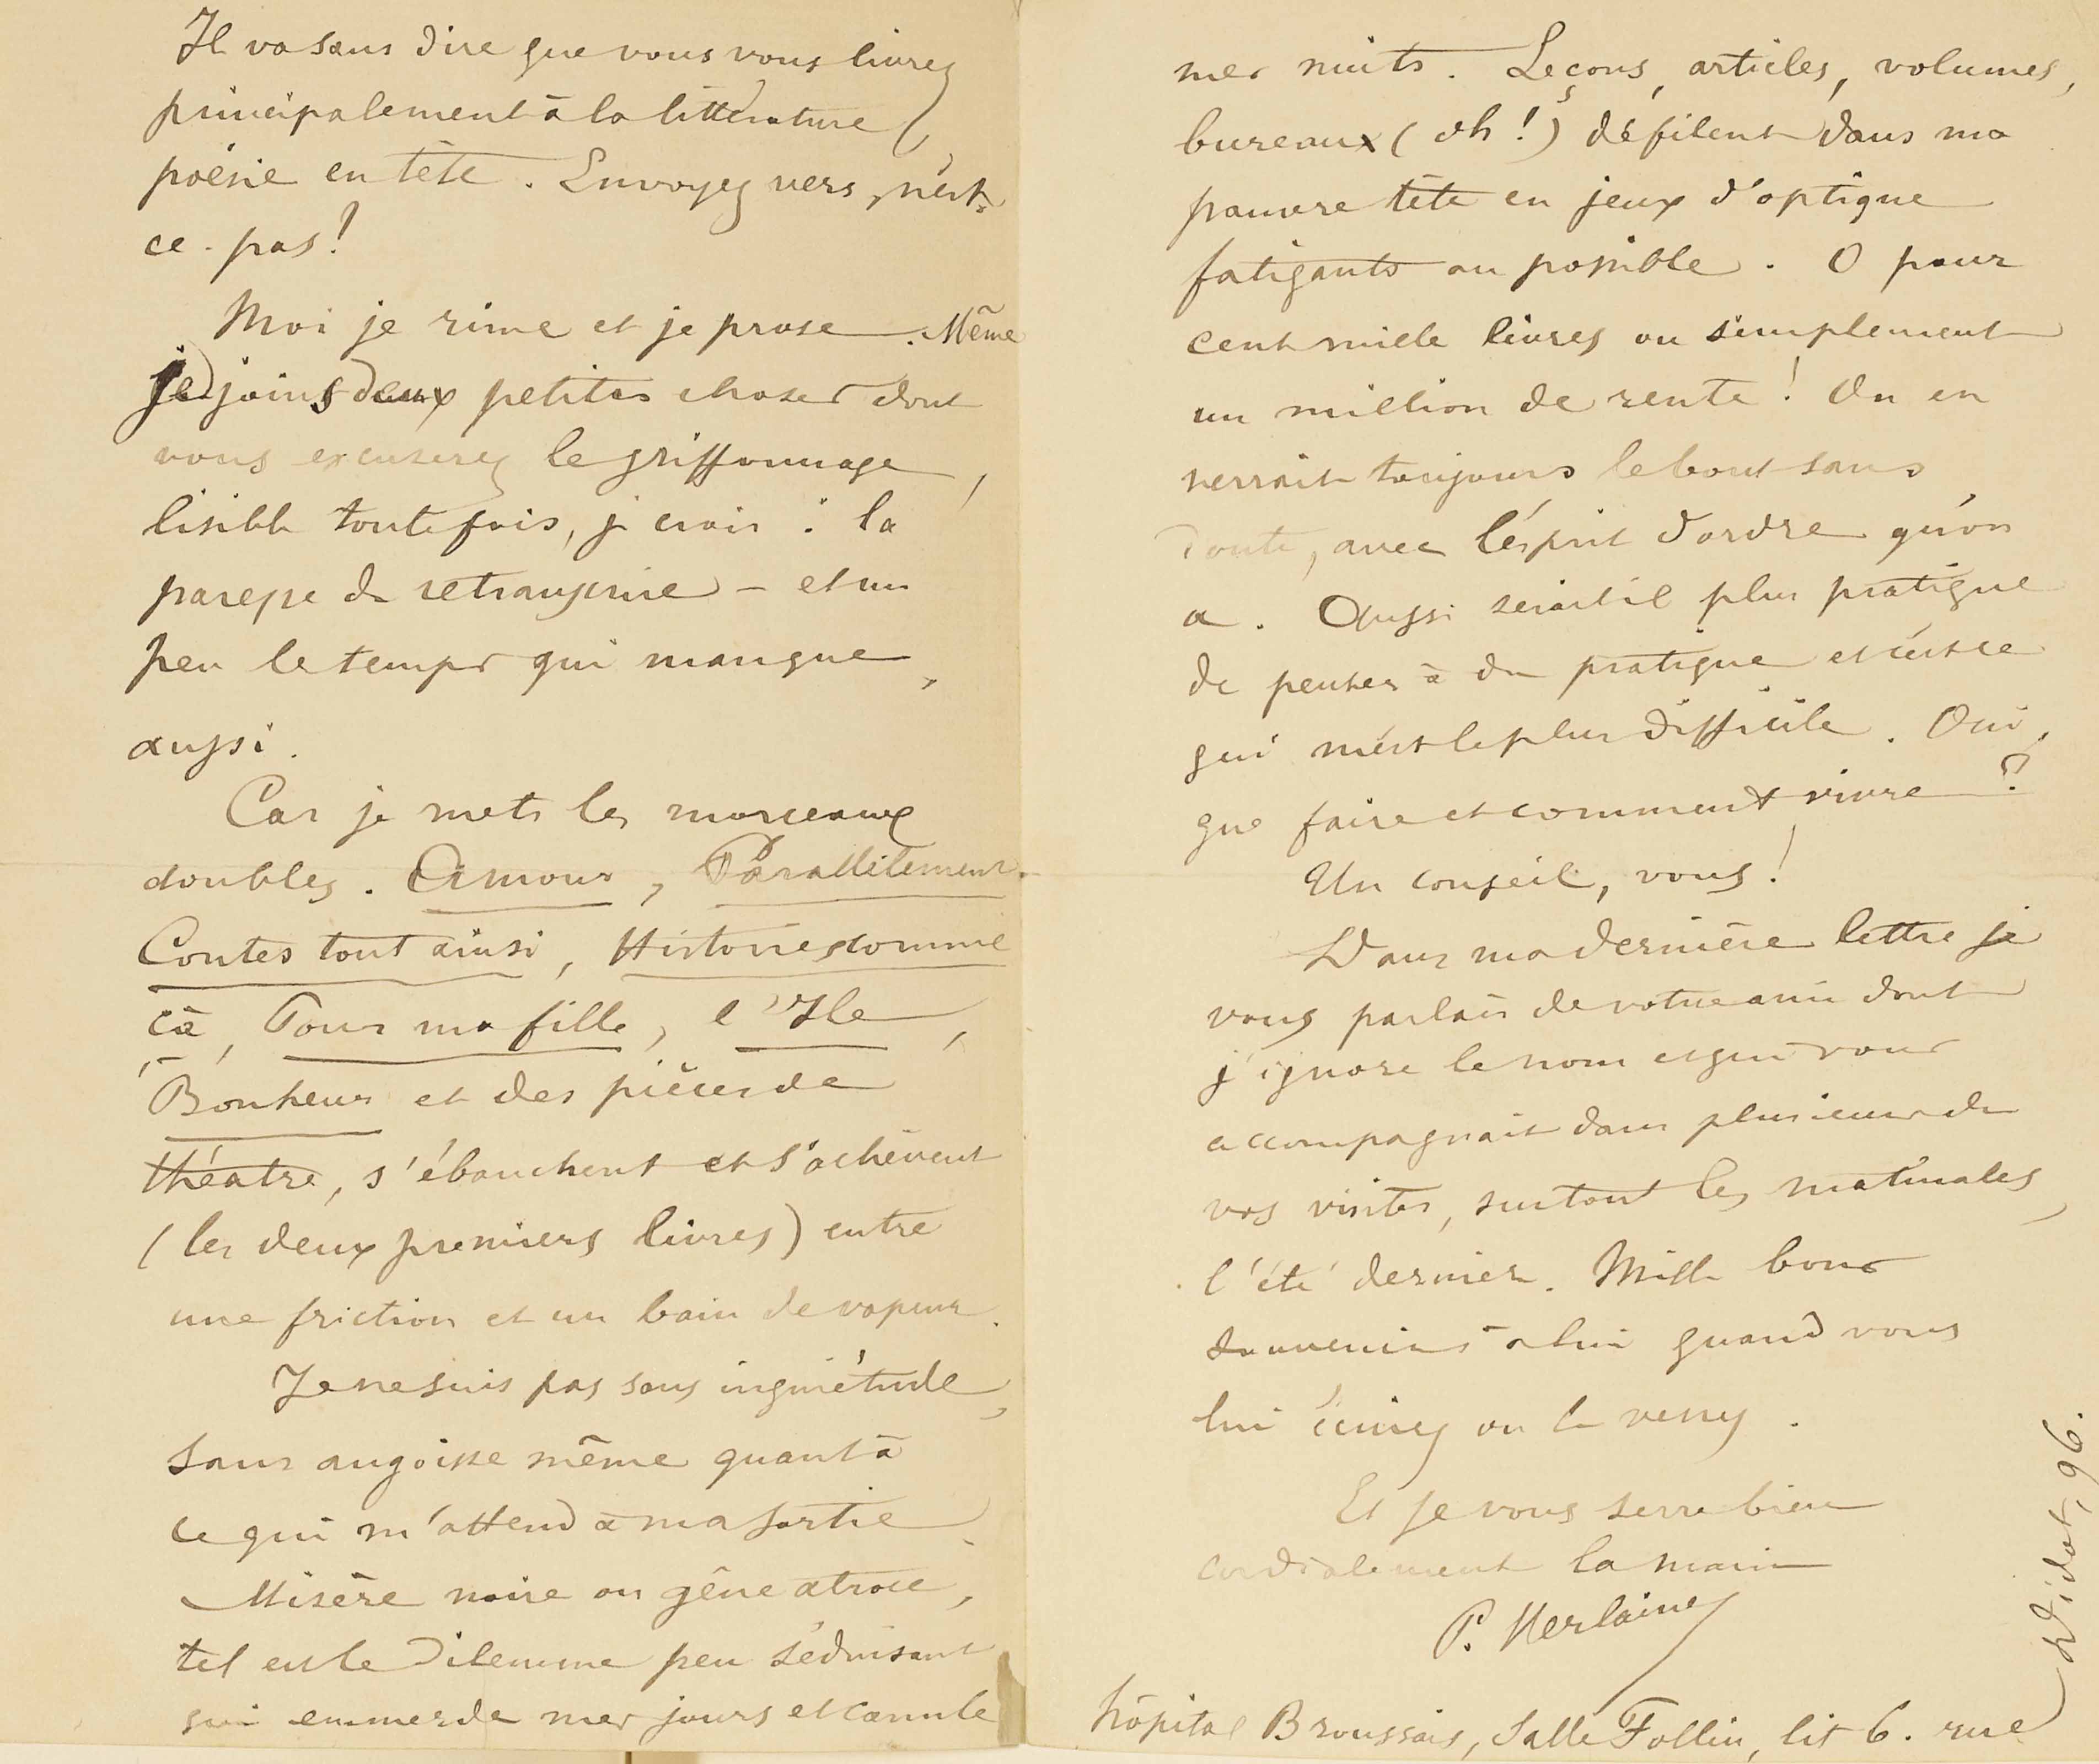 Il va sans dire que vous vous livrez
principalement à la littérature,
poésie en tête. Envoyez vers, n'est-
ce-pas!
Moi je rime et je prose. Même
je joins deux petites choses dont
vous excuserez le griffonnage,
lisible toutefois, je crois : la
paresse du retranscrire – et un
peu le temps qui manque,
aussi.
Car je mets les morceaux
doubles. Amour, Parallèlement.
Contes tout ainsi, Histoires comme
çà, Pour ma fille, l'Ile,
Bonheur et des pièces de
théatre, s'ébauchent et s'achèvent
(les deux premiers livres) entre
une friction et un bain de vapeur.
Je ne suis pas sans inquiétude,
sans angoisse même quant à
ce qui m'attend à ma sortie.
Misère noire ou gêne atroce,
tel est le dilemme peu séduisant
qui emmerde mes jours et canule
mes nuits. Leçons, articles, volumes,
bureaux (oh!) défilent dans ma
pauvre tête en jeux d'optique
fatigants au possible. O pour
cent mille livres ou simplement
un million de rente! On en
verrait toujours le bout sans
doute, avec l'esprit d'ordre qu'on
a. Aussi serait il plus pratique
de penser à du pratique et c'est ce
qui m'est le plus difficile. Oui,
que faire et comment vivre?
Un conseil, vous!
Dans ma dernière lettre je
vous parlais de votre ami dont
j'ignore le nom et qui vous
accompagnait dans plusieurs de
vos visites, surtout les matinales,
l'été dernier. Mille bons
souvenirs à lui quand vous
lui écrirez ou le verrez.
Et je vous serre bien
cordialement la main
P. Verlaine
hôpital Broussais, Salle Follin, lit 6. rue
Didot, 96.